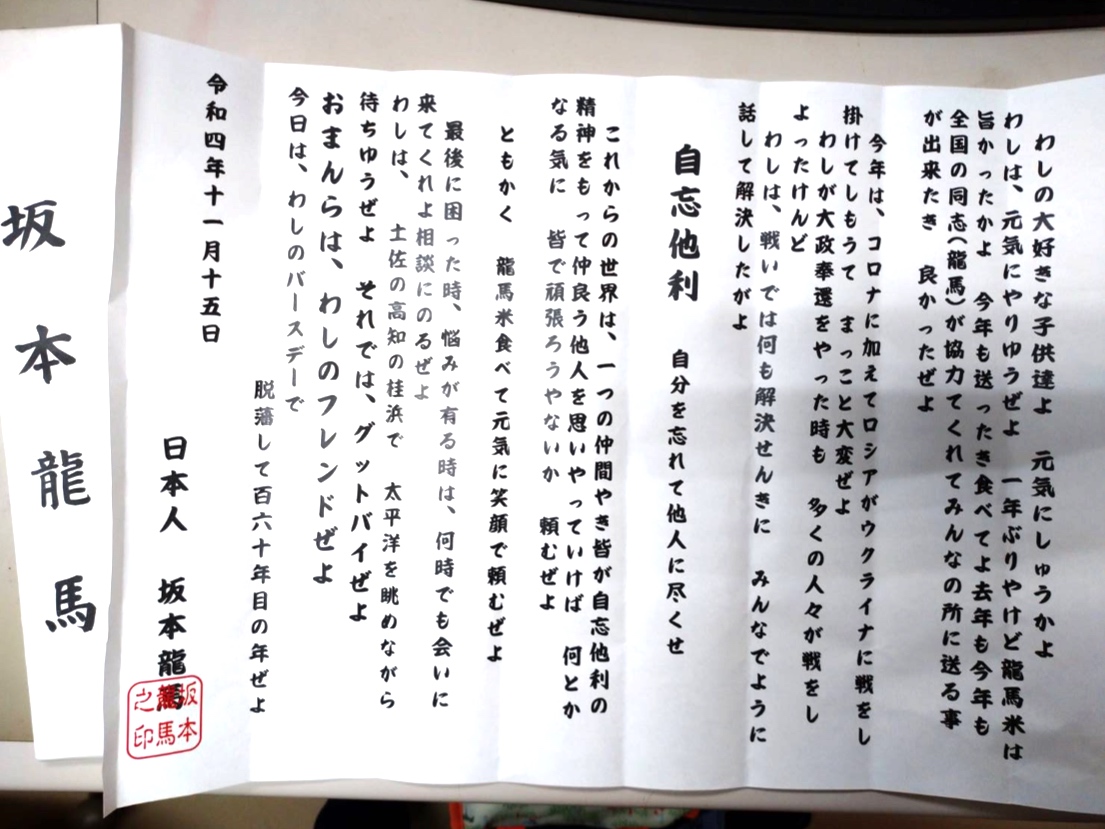 わしの大好きな子供達よ　元気にしゅうかよ
わしは、元気にやりゆうぜよ　一年ぶりやけど龍馬米は
旨かったかよ　今年も送ったき食べてよ去年も今年も
全国の同志(龍馬)が協力てくれてみんなの所に送る事
が出来たき　良かったぜよ
今年は、コロナに加えてロシアがウクライナに戦をし
掛けてしもうて　まっこと大変ぜよ
わしが大政奉還をやった時も　多くの人々が戦をし
よったけんど
わしは、戦いでは何も解決せんきに　みんなでように
話して解決したがよ
自忘他利　自分を忘れて他人に尽くせ
これからの世界は、一つの仲間やき皆が自忘他利の
精神をもって仲良う他人を思いやっていけば　何とか
なる気に　皆で頑張ろうやないか　頼むぜよ
ともかく　龍馬米食べて元気に笑顔で頼むぜよ
最後に困った時、悩みが有る時は、何時でも会いに
来てくれよ相談にのるぜよ
わしは、　土佐の高知の桂浜で　太平洋を眺めながら
待ちゆうぜよ　それでは、グットバイぜよ
おまんらは、わしのフレンドぜよ
今日は、わしのバースデーで
脱藩して百六十年目の年ぜよ
令和四年十一月十五日
日本人　坂本龍馬
坂本龍馬之印
坂本龍馬